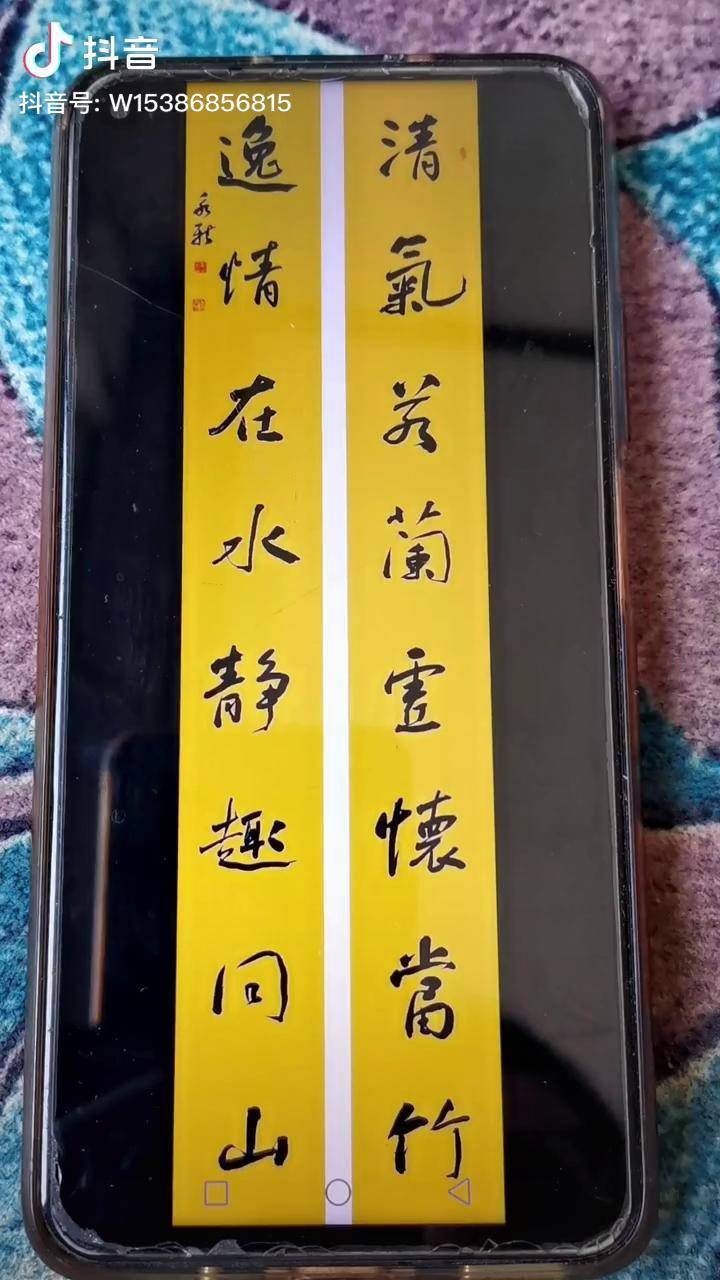 抖音
抖音号: W15386856815
清氣若蘭虛懷當竹
逸情在水静趣同山